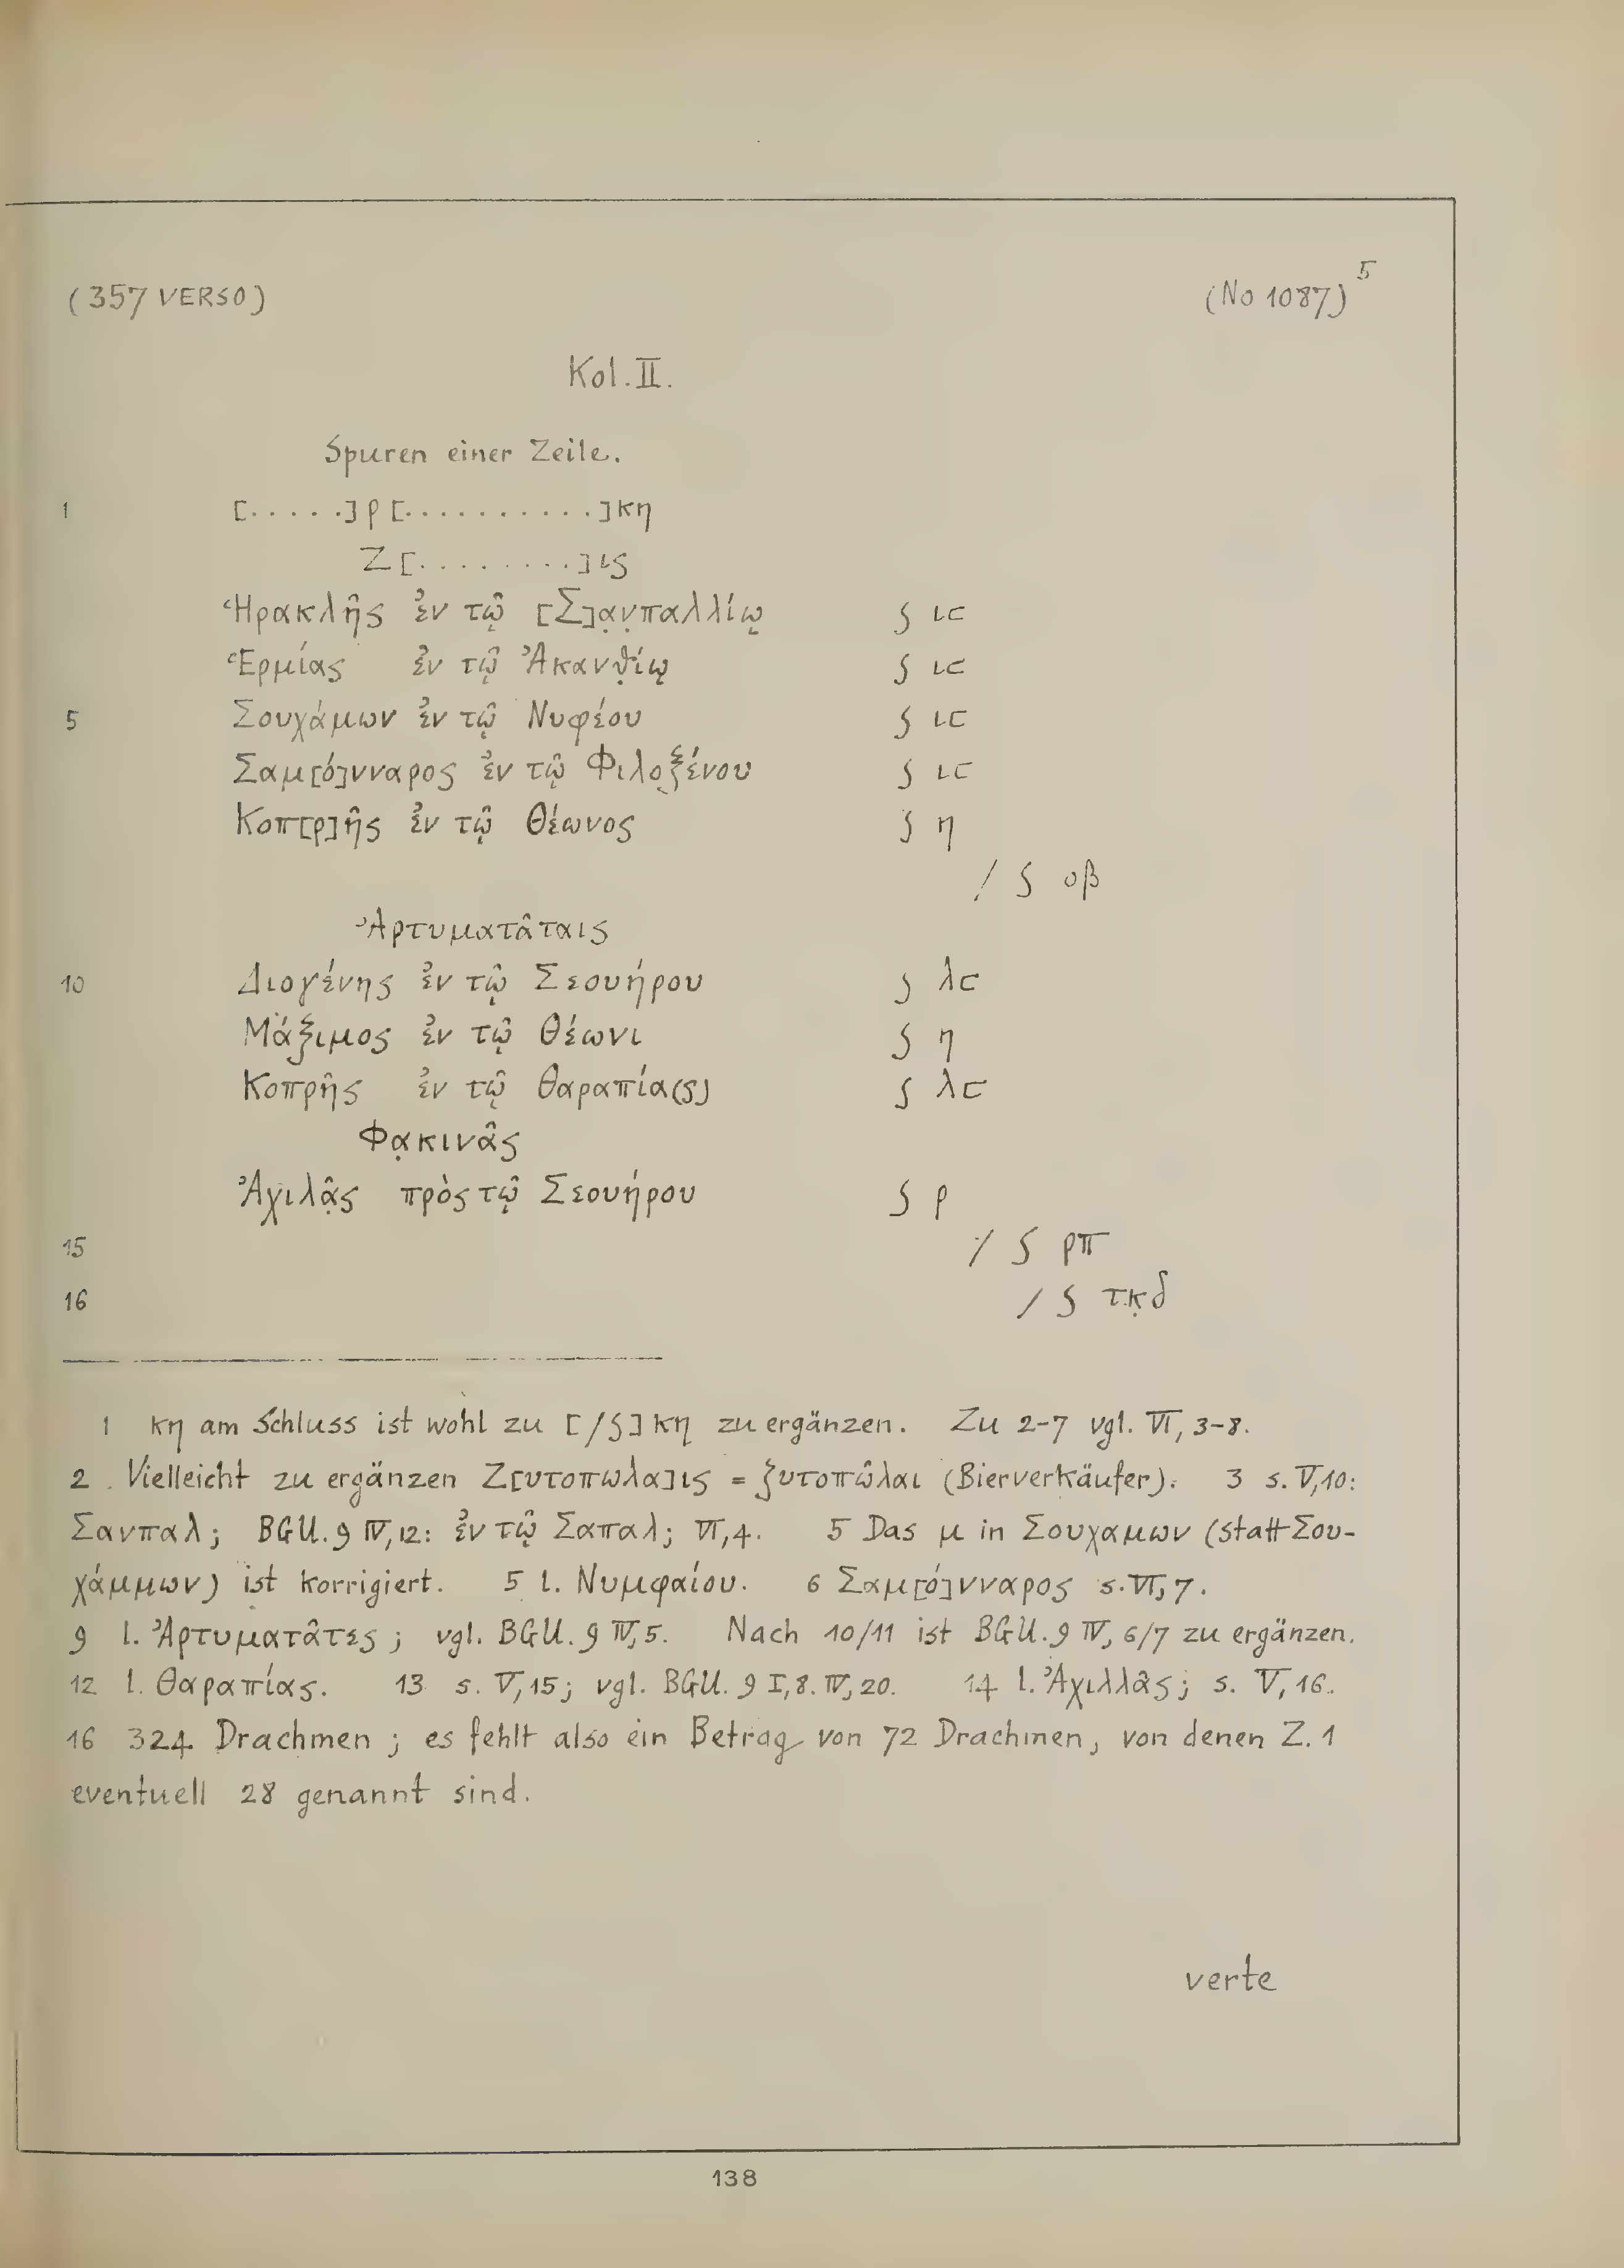 (357 VERSO) (No 1087) 5
Kol. II.
Spuren einer Zeile.
1 [.....]ρ[..........]κη
Ζ[........]ις
Ἡρακλῆς ἐν τῷ [Σ]α̣ν̣παλλίῳ ʃ ιϲ
Ἑρμίας ἐν τῷ Ἀκανθ̣ίῳ ʃ ιϲ
5 Σουχάμων ἐν τῷ Νυφέου ʃ ιϲ
Σαμ[ό]νναρος ἐν τῷ Φιλο̣ξένου ʃ ιϲ
Κοπ[ρ]ῆς ἐν τῷ Θέωνος ʃ η
/ ʃ οβ
Ἀρτυματᾶταις
10 Διογένης ἐν τῷ Σεουήρου ʃ λϲ
Μάξιμος ἐν τῷ Θέωνι ʃ η
Κοπρῆς ἐν τῷ Θαραπία(ς) ʃ λϲ
Φα̣κινᾶς
Ἀχιλᾶ̣ς πρὸς τῷ Σεουήρου ʃ ρ
15 / ʃ ρπ
16 / ʃ τκ̣δ
1 κη am Schluss ist wohl zu [/ʃ]κη zu ergänzen. Zu 2-7 vgl. VI, 3-8.
2. Vielleicht zu ergänzen Ζ[υτοπωλα]ις = ζυτοπῶλαι (Bierverkäufer). 3 s. V,10:
Σανπαλ; BGU. 9 IV, 12: ἐν τῷ Σαπαλ; VI, 4. 5 Das μ in Σουχαμων (statt Σου-
χάμμων) ist korrigiert. 5 l. Νυμφαίου. 6 Σαμ[ό]νναρος s. VI, 7.
9 l. Ἀρτυματᾶτες; vgl. BGU. 9 IV, 5. Nach 10/11 ist BGU. 9 IV, 6/7 zu ergänzen.
12 l. Θαραπίας. 13 s. V, 15; vgl. BGU. 9 I, 8. IV, 20. 14 l. Ἀχιλλᾶς; s. V, 16.
16 324 Drachmen; es fehlt also ein Betrag von 72 Drachmen, von denen Z. 1
eventuell 28 genannt sind.
verte
138